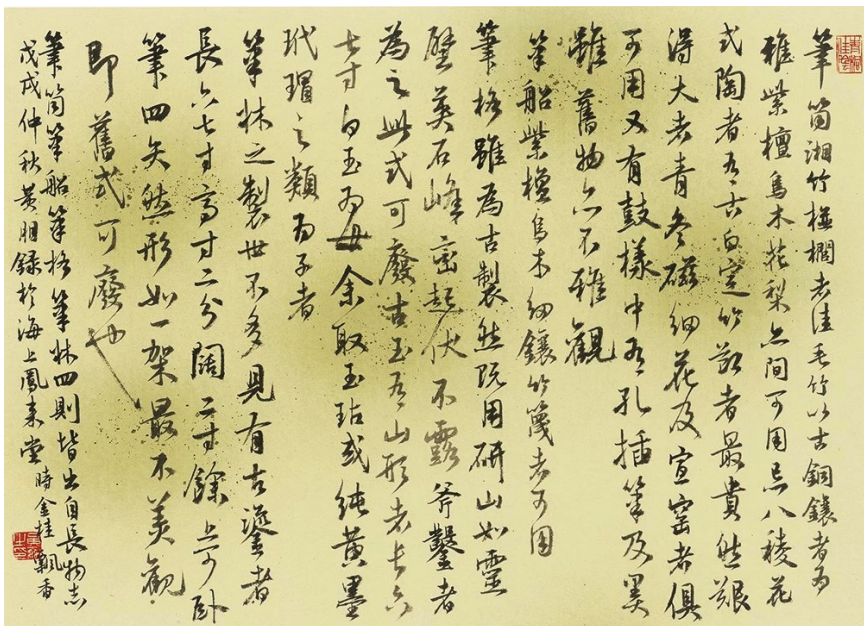 筆筒湘竹栟櫚者佳毛竹以古銅鑲者為
雅紫檀烏木花梨亦間可用忌八稜花
式陶者有古白定竹節者最貴然艱
得大者青冬磁細花及宣窑者俱
可用又有鼓樣中有孔插筆及墨
雖舊物亦不雅觀
筆船紫檀烏木細鑲竹篾者可用
筆格雖為古製然既用研山如靈
壁英石峰巒起伏不露斧鑿者
為之此式可廢古玉有山形者長六
七寸白玉為母余取玉玷或純黃墨
玳瑁之類為子者
筆牀之製世不多見有古鎏者
長六七寸高寸二分闊二寸餘上可卧
筆四矢然形如一架最不美觀
即舊式可廢也
筆筒筆船筆格筆牀四則皆出自長物志
戊戌仲秋黃胆錄於海上鳳來堂時金桂飄香